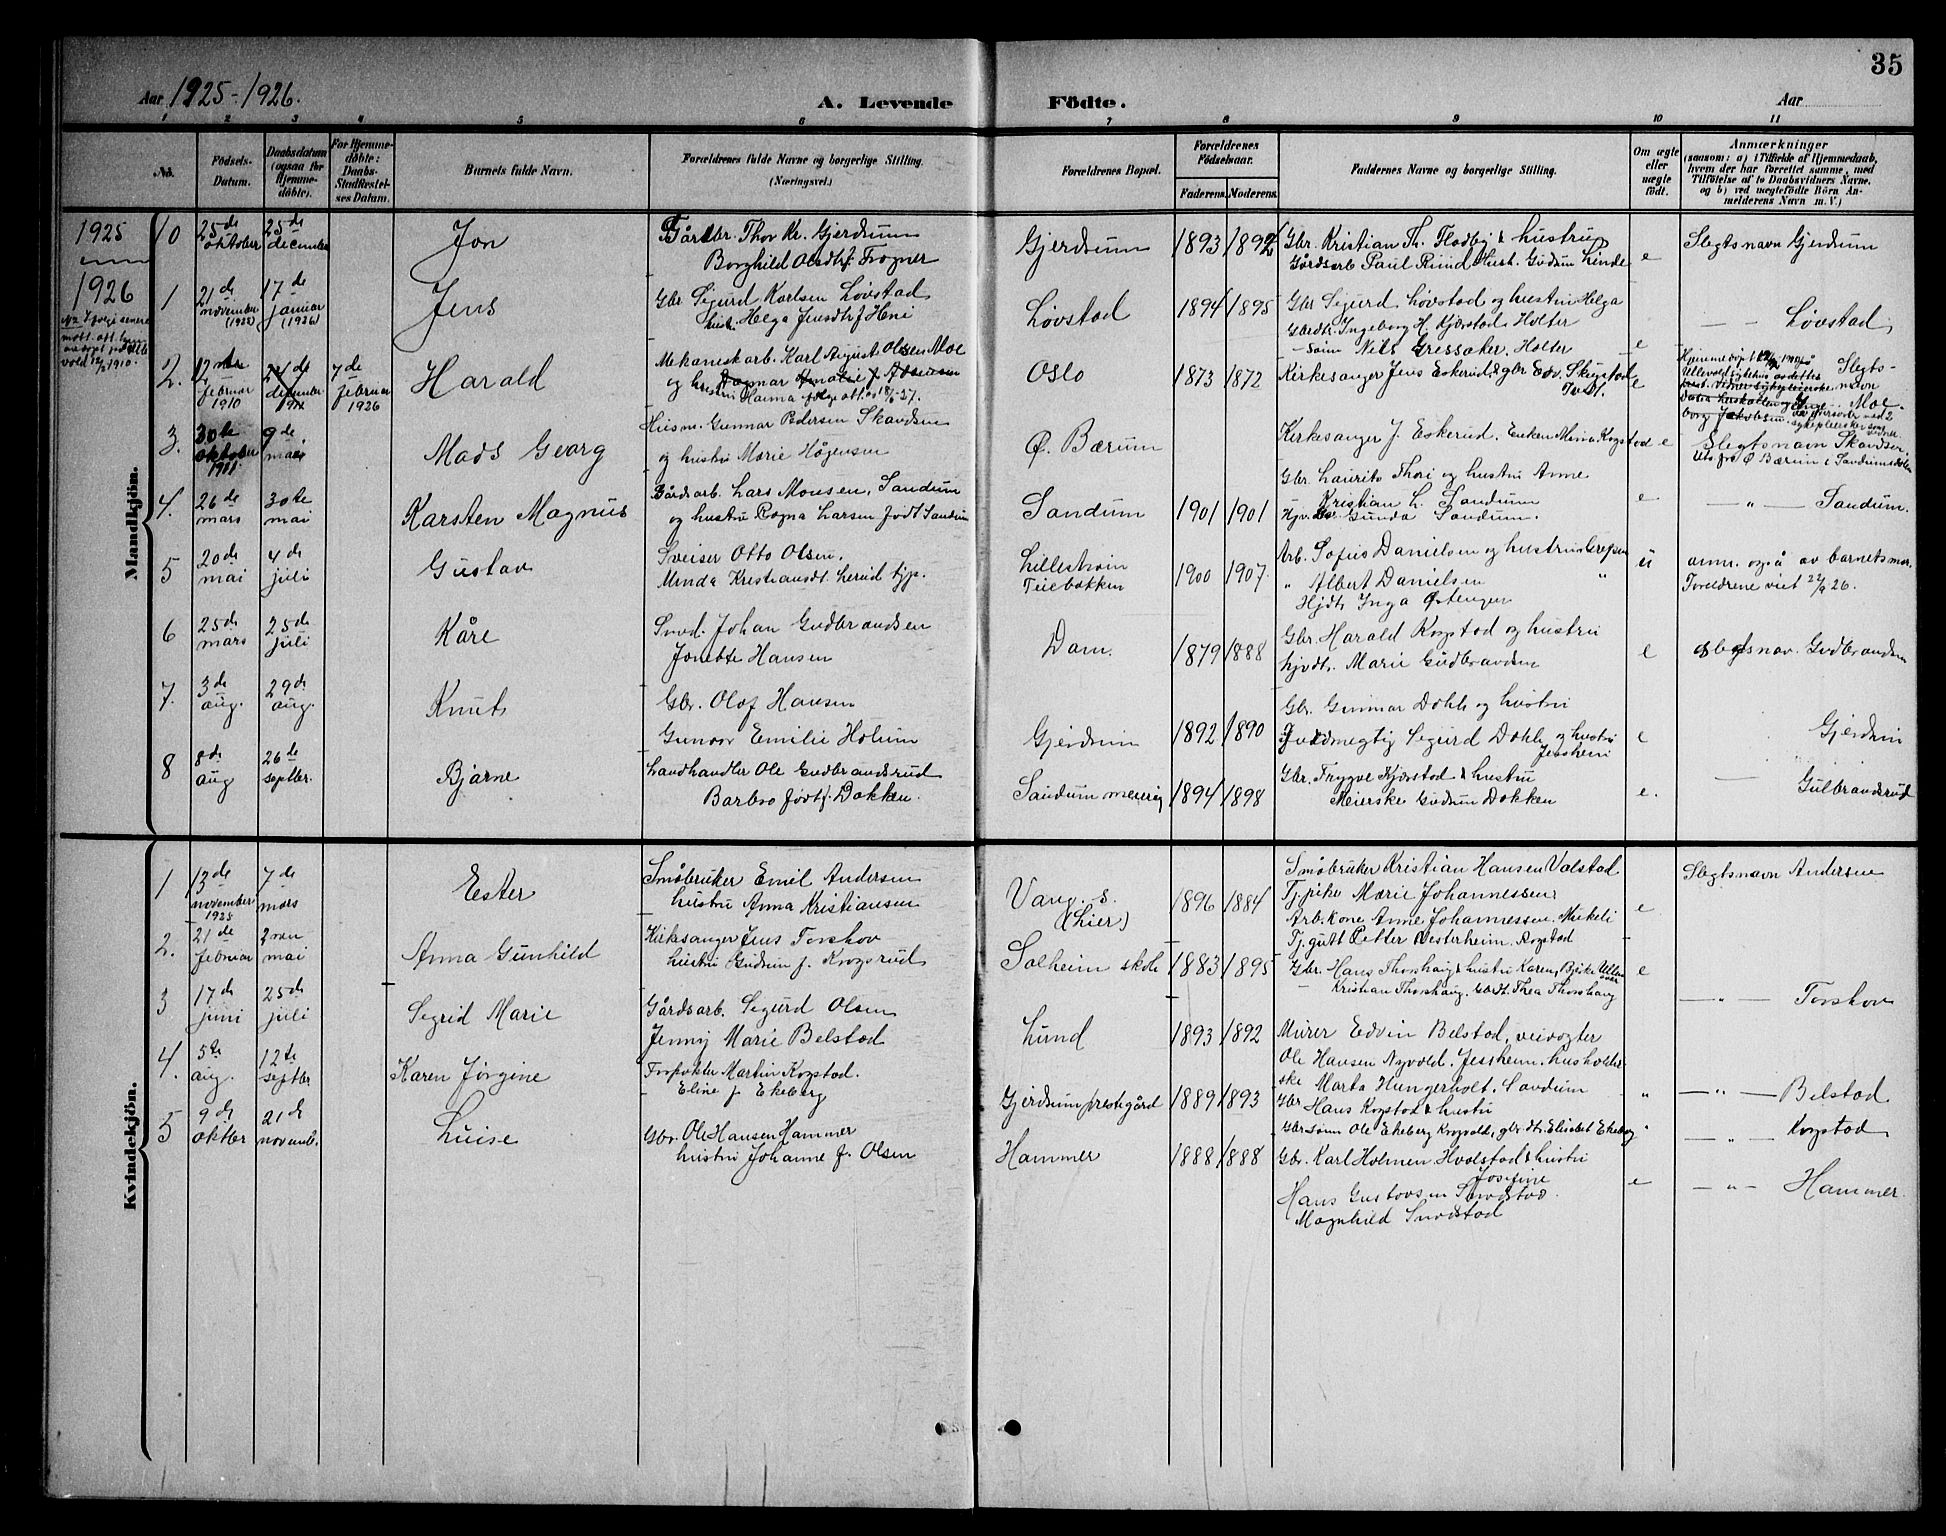 35
Aar 1925-1926.
A. Levende Födte.
Aar
1 2 3 4 5 6 7 8 9 10 11
No.
Födsels-Datum.
Daabsdatum (ogsaa for Hjemme-döbte).
For Hjemme-döbte: Daabs-Stadfæstel-ses Datum.
Barnets fulde Navn.
Forældrenes fulde Navne og borgerlige Stilling.
(Næringsvei.)
Forældrenes Bopæl.
Forældrenes Födselsaar.
Faderens. Moderens.
Faddernes Navne og borgerlige Stilling.
Om ægte eller uægte födt.
Anmærkninger
(saasom: a) i Tilfælde af Hjemmedaab,
hvem der har forrettet samme, med
Tilföielse af to Daabsvidners Navne,
og b) ved uægtefödte Börn An-
melderens Navn m. V.)
Mandkjön.
1925
10 25de oktober 25de december Jon
Gårdbr. Thor Kr. Gjerdrum
Borghild Olsdtr f Frogner
Gjerdrum 1893 1892
Gbr. Kristian Th. Flodby & hustru
Gårdsarb Paul Rund Hust. Gudrun Linde
e Slegtsnavn Gjerdrum
1926
1 21de november (1925) 17de januar (1926) Jens
Gbr Sigurd Karlsen Løvstad
hust. Helga Jensdtr f Heni
Løvstad 1894 1895
Gbr Sigurd Løvstad og hustru Helga
Gbrdtr. Ingeborg H Kjørstad Holter
— sønn Nils Gressaker. Holter
e — — Løvstad
2. 12 februar 1910 24de december 1911 7de februar 1926 Harald
Mekaniskarb. Karl August Olsen Moe
og hustru Dagmar Amalie f
Hanna
Oslo 1873 1872
Kirkesanger Jens Eskerud & gbr Edv. Skjestad
e Slegts-
navn
Moe
3. 30te oktober 1911 9de mai Mads Georg
Husm. Gunnar Pedersen Skandsen
og hustru Marie Hågensen
Ø. Bærum
Kirkesanger J. Eskerud. Enken Mina Kogstad
e Slegtsnavn Skandsen
4. 26de mars 30te mai Karsten Magnus
Gårdsarb. Lars Monsen, Sandum
og hustru Ragna Larsen født Sandum
Sandum 1901 1901
Gbr. Laurits Thori og hustru Anne
Kristian L. Sandum
Gunda Sandum.
e — " — Sandum.
5 20de mai 4de juli Gustav
Sveiser Otto Olsen.
Minda Kristiansdt. Lerud tjp.
Lillestrøm
Teiebakken
1900 1907.
Arb. Sofus Danielsen og hustru
" Albert Danielsen "
Hjdt. Inga Østengen
u anm. også av barnets mor.
Foreldrene viet 22/9 26.
6 25de mars 25de juli Kåre
Sned. Johan Gudbrandsen
Jonette Hansen
Dam. 1879 1888
Gbr Harald Kogstad og hustru
hjvdt. Marie Gudbrandsen
e Slegtsnav. Gudbrandsen
7. 3de aug. 29de aug. Knut
Gbr. Olaf Hansen
Gunvor Emilie Holum
Gjerdrum 1892 1890
Gbr. Gunnar Dahl og hustru
Fuldmegtig Sigurd Dahl og hustru
Jessheim
e Gjerdrum
8 8de aug 26de septbr. Bjarne
Landhandler Ole Gudbrandsrud
Barbro født f. Dokken.
Sandum meieri 1894 1898
Gbr. Trygve Kjørstad & hustru
Meierske Gudrun Dokken
e. — Gulbrandsrud
Kvindekjön.
1 13de november 1925 7de mars Ester
Småbruker Emil Andersen
hustru Anna Kristiansen
Vang. s.
(Lier)
1896 1884
Småbruker Kristian Hansen Valstad
Tj.pike Marie Johannessen
Arb.kone Anne Johannessen, Mikeli
Tj.gutt Petter Vesterheim. Rogstad
e Slegtsnavn Andersen
2. 21de februar 2nen mai Anna Gunhild
Kirkesanger Jens Torshov
hustru Gudrun f. Krogsrud
Solheim skole 1883 1895
Gbr. Hans Thorshaug & hustru Karen,
Kristian Thorshaug. Gbrdt. Thea Thorshaug
e — " — Torshov
3 17de juni 25de juli Sigrid Marie
Gårdsarb. Sigurd Olsen
Jenny Marie Belstad
Lund 1893 1892
Murer Edvin Belstad, veivogter
Ole Hansen Nyvold, Jessheim, husholder-
ske Marta Hungerholt. Sandum
" — " — Belstad
4. 5te aug. 12te septbr Karen Jørgine
Forpakter Martin Kogstad.
Eline f Ekeberg
Gjerdrum prestegård 1889 1893
Gbr Hans Kogstad & hustru
Gbr.sønn Ole Ekeberg Krogvold, gbr.dtr. Elisabet Ekeberg
" — " — Kogstad
5 9de oktbr 21de novemb. Luise
Gbr. Ole Hansen Hammer
hustru Johanne f. Olsen
Hammer 1888 1888
Gbr. Karl Holmen Hvalstad & hustru
Josefine
Hans Gustavsen Smedstad.
Magnhild Smedstad
e — " — Hammer.